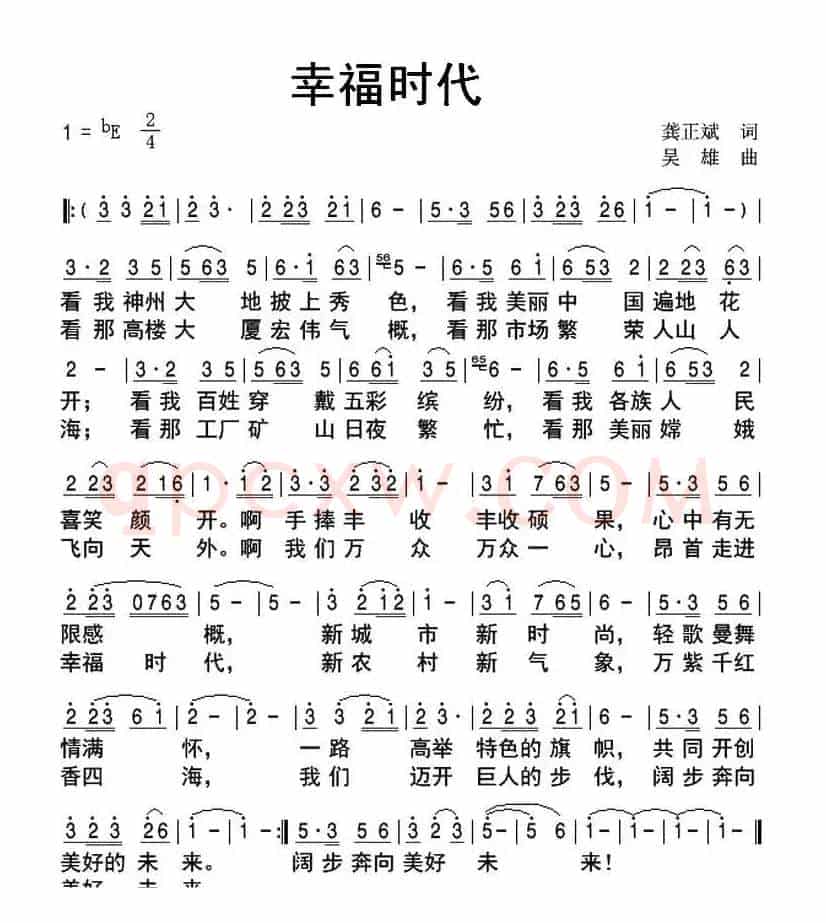 幸福时代
1 = bE 2/4
龚正斌 词
吴 雄 曲
‖:( 3 3 2 1 | 2 3· | 2 2 3 2 1 | 6 - | 5·3 5 6 | 3 2 3 2 6 | 1 - | 1 - ) |
3·2 3 5 | 5 6 3 5 | 6·1 6 3 | 56 5 - | 6·5 6 1 | 6 5 3 2 | 2 2 3 6 3 |
看我神州大 地披上秀 色，看我美丽中 国遍地 花
看那高楼大 厦宏伟气 概，看那市场繁 荣人山 人
2 - | 3·2 3 5 | 5 6 3 5 | 6 6 1 3 5 | 65 6 - | 3·2 3 5 | 6 5 3 2 |
开；看我 百姓穿 戴五彩 缤 纷，看我 各族人 民
海；看那 工厂矿 山日夜 繁 忙，看那 美丽嫦 娥
2 2 3 2 1 6 | 1·1 1 2 | 3·3 2 3 2 1 | 2 - | 3 1 7 6 3 | 5 - | 5·3 5 6 |
喜笑 颜 开。啊 手捧丰 收 丰收硕 果，心中有无
飞向 天 外。啊 我们万 众 万众一 心，昂首走进
2 2 3 0 7 6 3 | 5 - | 5 - | 3 2 1 2 | 1 - | 3 1 7 6 5 | 6 - | 5·3 5 6 |
限感 概， 新城 市 新 时 尚，轻歌曼舞
幸福 时 代， 新农 村 新 气 象，万紫千红
2 2 3 6 1 | 2 - | 2 - | 3 3 2 1 | 2 3· | 2 2 3 2 1 | 6 - | 5·3 5 6 |
情满 怀， 一路 高举 特色的旗 帜，共同开创
香四 海， 我们 迈开 巨人的步 伐，阔步奔向
3 2 3 2 6 | 1 - | 1 - :‖ 5·3 5 6 | 3 2 3 | 5 - | 5 6 | 1 - | 1 - | 1 - | 1 - ‖
美好的 未 来。 阔步奔向美好 未 来！
美好 未 来
qpcxw.COM